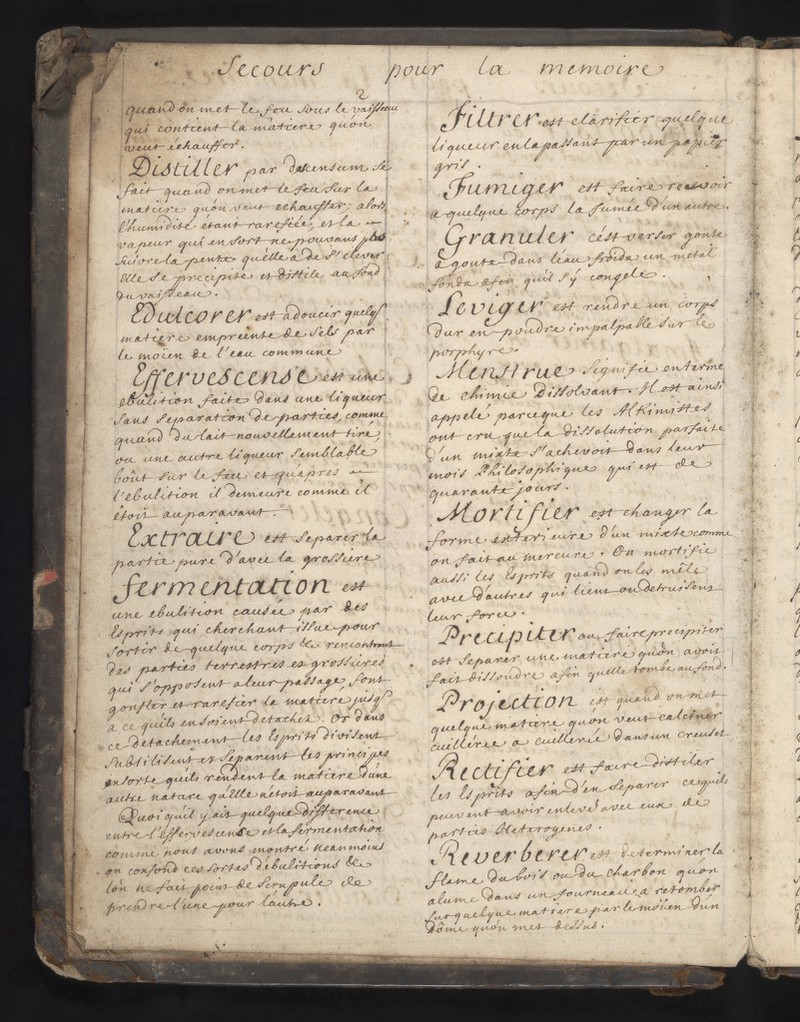 Secours pour la memoire
2
quand on met le feu sous le vaisseau
qui contient la matiere quon
veut échauffer.
Distiller par dessensum se
fait quand on met le feu sur la
matiere quon veut echauffer; alors
l'humidité étant rarefiée, et la
vapeur qui en sort ne pouvans plus
suivre la pente quelle a de s'elever
elle se precipite et distile au fond
du vaisseau.
Edulcorer est adoucir quelq
matiere empreinte de sels par
le moïen de l'eau commune
Effervescense est une
ebulition faite dans une liqueur
sans separation de parties, comme
quand du lait nouvellement tiré,
ou une autre liqueur semblable
bout sur le feu et quapres
l'ebulition il demeure comme il
étoit auparavant.
Extraire est separer la
partie pure d'avec la grossiere
fermentation est
une ebulition causée par des
Esprits qui cherchant issue pour
sortir de quelque corps & rencontrant
des parties terrestres et grossieres
qui s'opposent a leur passage, font
gonfler et rarefier la matiere jusq
a ce quils en soient detachez. Or dans
ce detachement les Esprits divisent
subtilisent et separent les principes
ensorte quils rendent la matiere dune
autre nature quelle nétoit auparavant
Quoi quil y ait quelque difference
entre l'effervescense et la fermentation
comme nous avons montré neanmoins
on confond ces sortes débulitions &
lón ne fait point de scrupule de
prendre l'une pour lautre.
Filtrer est clarifier quelque
liqueur en la passant par un papier
gris.
Fumiger est faire recevoir
a quelque corps la fumée d'un autre.
Granuler cést verser goute
a goute dans leau froide un métal
fondu afin quil s'y congele.
Leviger est rendre un corps
dur en poudre impalpable sur le
porphyre.
Menstrue signifie en terme
de chimie Dissolvant. Il est ainsi
appelé parceque les Alkimistes
ont cru que la dissolution parfaite
d'un mixte s'achevoit dans leur
mois Philosophique qui est de
quarante jours.
Mortifier est changer la
forme exterieure d'un mixte comme
on fait au mercure. On mortifie
aussi les Esprits quand on les mêle
avec d'autres qui lient ou detruisent
leur force.
Precipiter ou faire precipiter
est separer une matiere quón avoit
fait dissoudre afin quelle tombe au fond.
Projection est quand on met
quelque matiere quón veut calciner
cuillerée a cuillerée dans un creuset
Rectifier est faire distiler
les Esprits afin d'en separer ce quils
peuvent avoir enlevé avec eux de
parties Heterogenes.
Reverberer est determiner la
flame du bois ou du charbon quón
alume dans un fourneau a retomber
sur quelque matiere par le moïen d'un
Dôme quón met dessus.